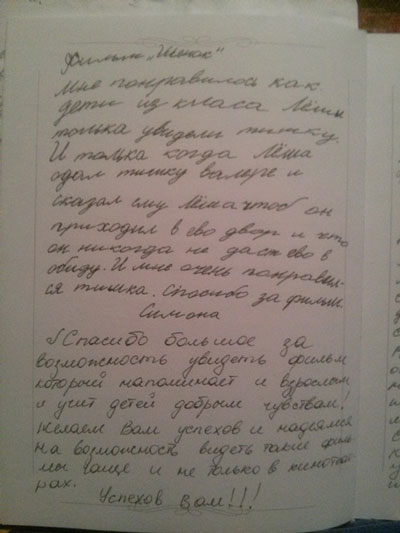 Фильм „Щенок"
Мне понравилось как
дети из класса Лёши
только увидели тишку.
И толька когда Лёша
одал тишку валере и
сказал ему Лёша чтоб он
приходил в ево двор и что
он никогда не даст ево в
обиду. И мне очень понравил-
ся тишка. Спосибо за фильм.
Симона
Спасибо большое за
возможность увидеть фильм
который напоминает и взрослым
и учит детей добрым чувствам!
Желаем Вам успехов и надеямся
на возможность видеть такие филь-
мы чаще и не только в кинотеат-
рах.
Успехов Вам!!!